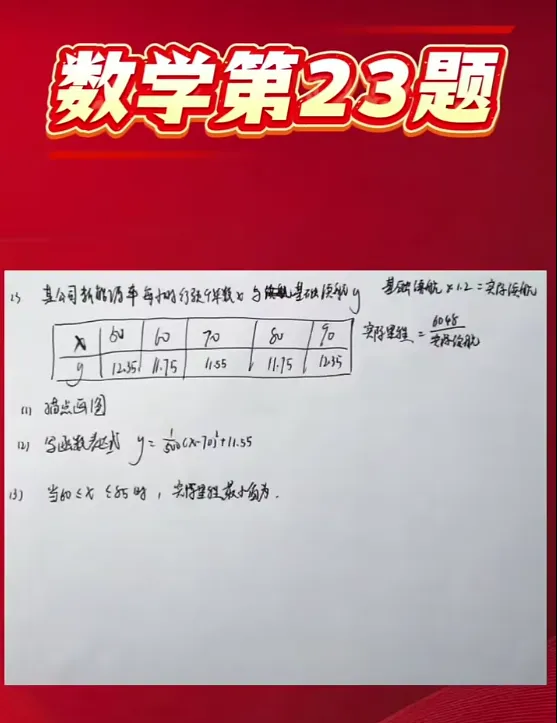 数学第23题
23 某公司新能源车每小时行驶千米数x与基础续航y 基础续航×1.2=实际续航
x 60 60 70 80 90
y 12.35 11.75 11.55 11.75 12.35
实际里程 = 6048/实际续航
(1) 描点画图
(2) 写函数表达式 y = 1/500(x-70)²+11.55
(3) 当60≤x≤85时，实际里程最小值为.